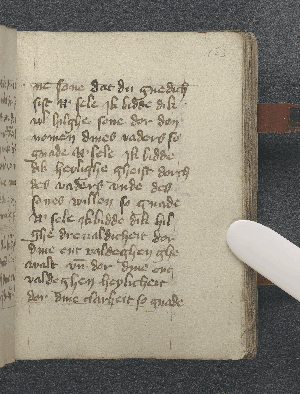 ne sone dat du gnedich
sist N sele ik bidde dik
vil hilghe sone dor den
nomen dines vaders so
gnade N sele ik bidde
dik heylighe gheist dorch
des vaders unde des
sones willen so gnade
N sele ik bidde dik hil
ghe drevaldicheit dor
dine ent valdeghen ghe
walt vn dor dine ent
valdeghen heylicheit
dor dine clarheit so gnade